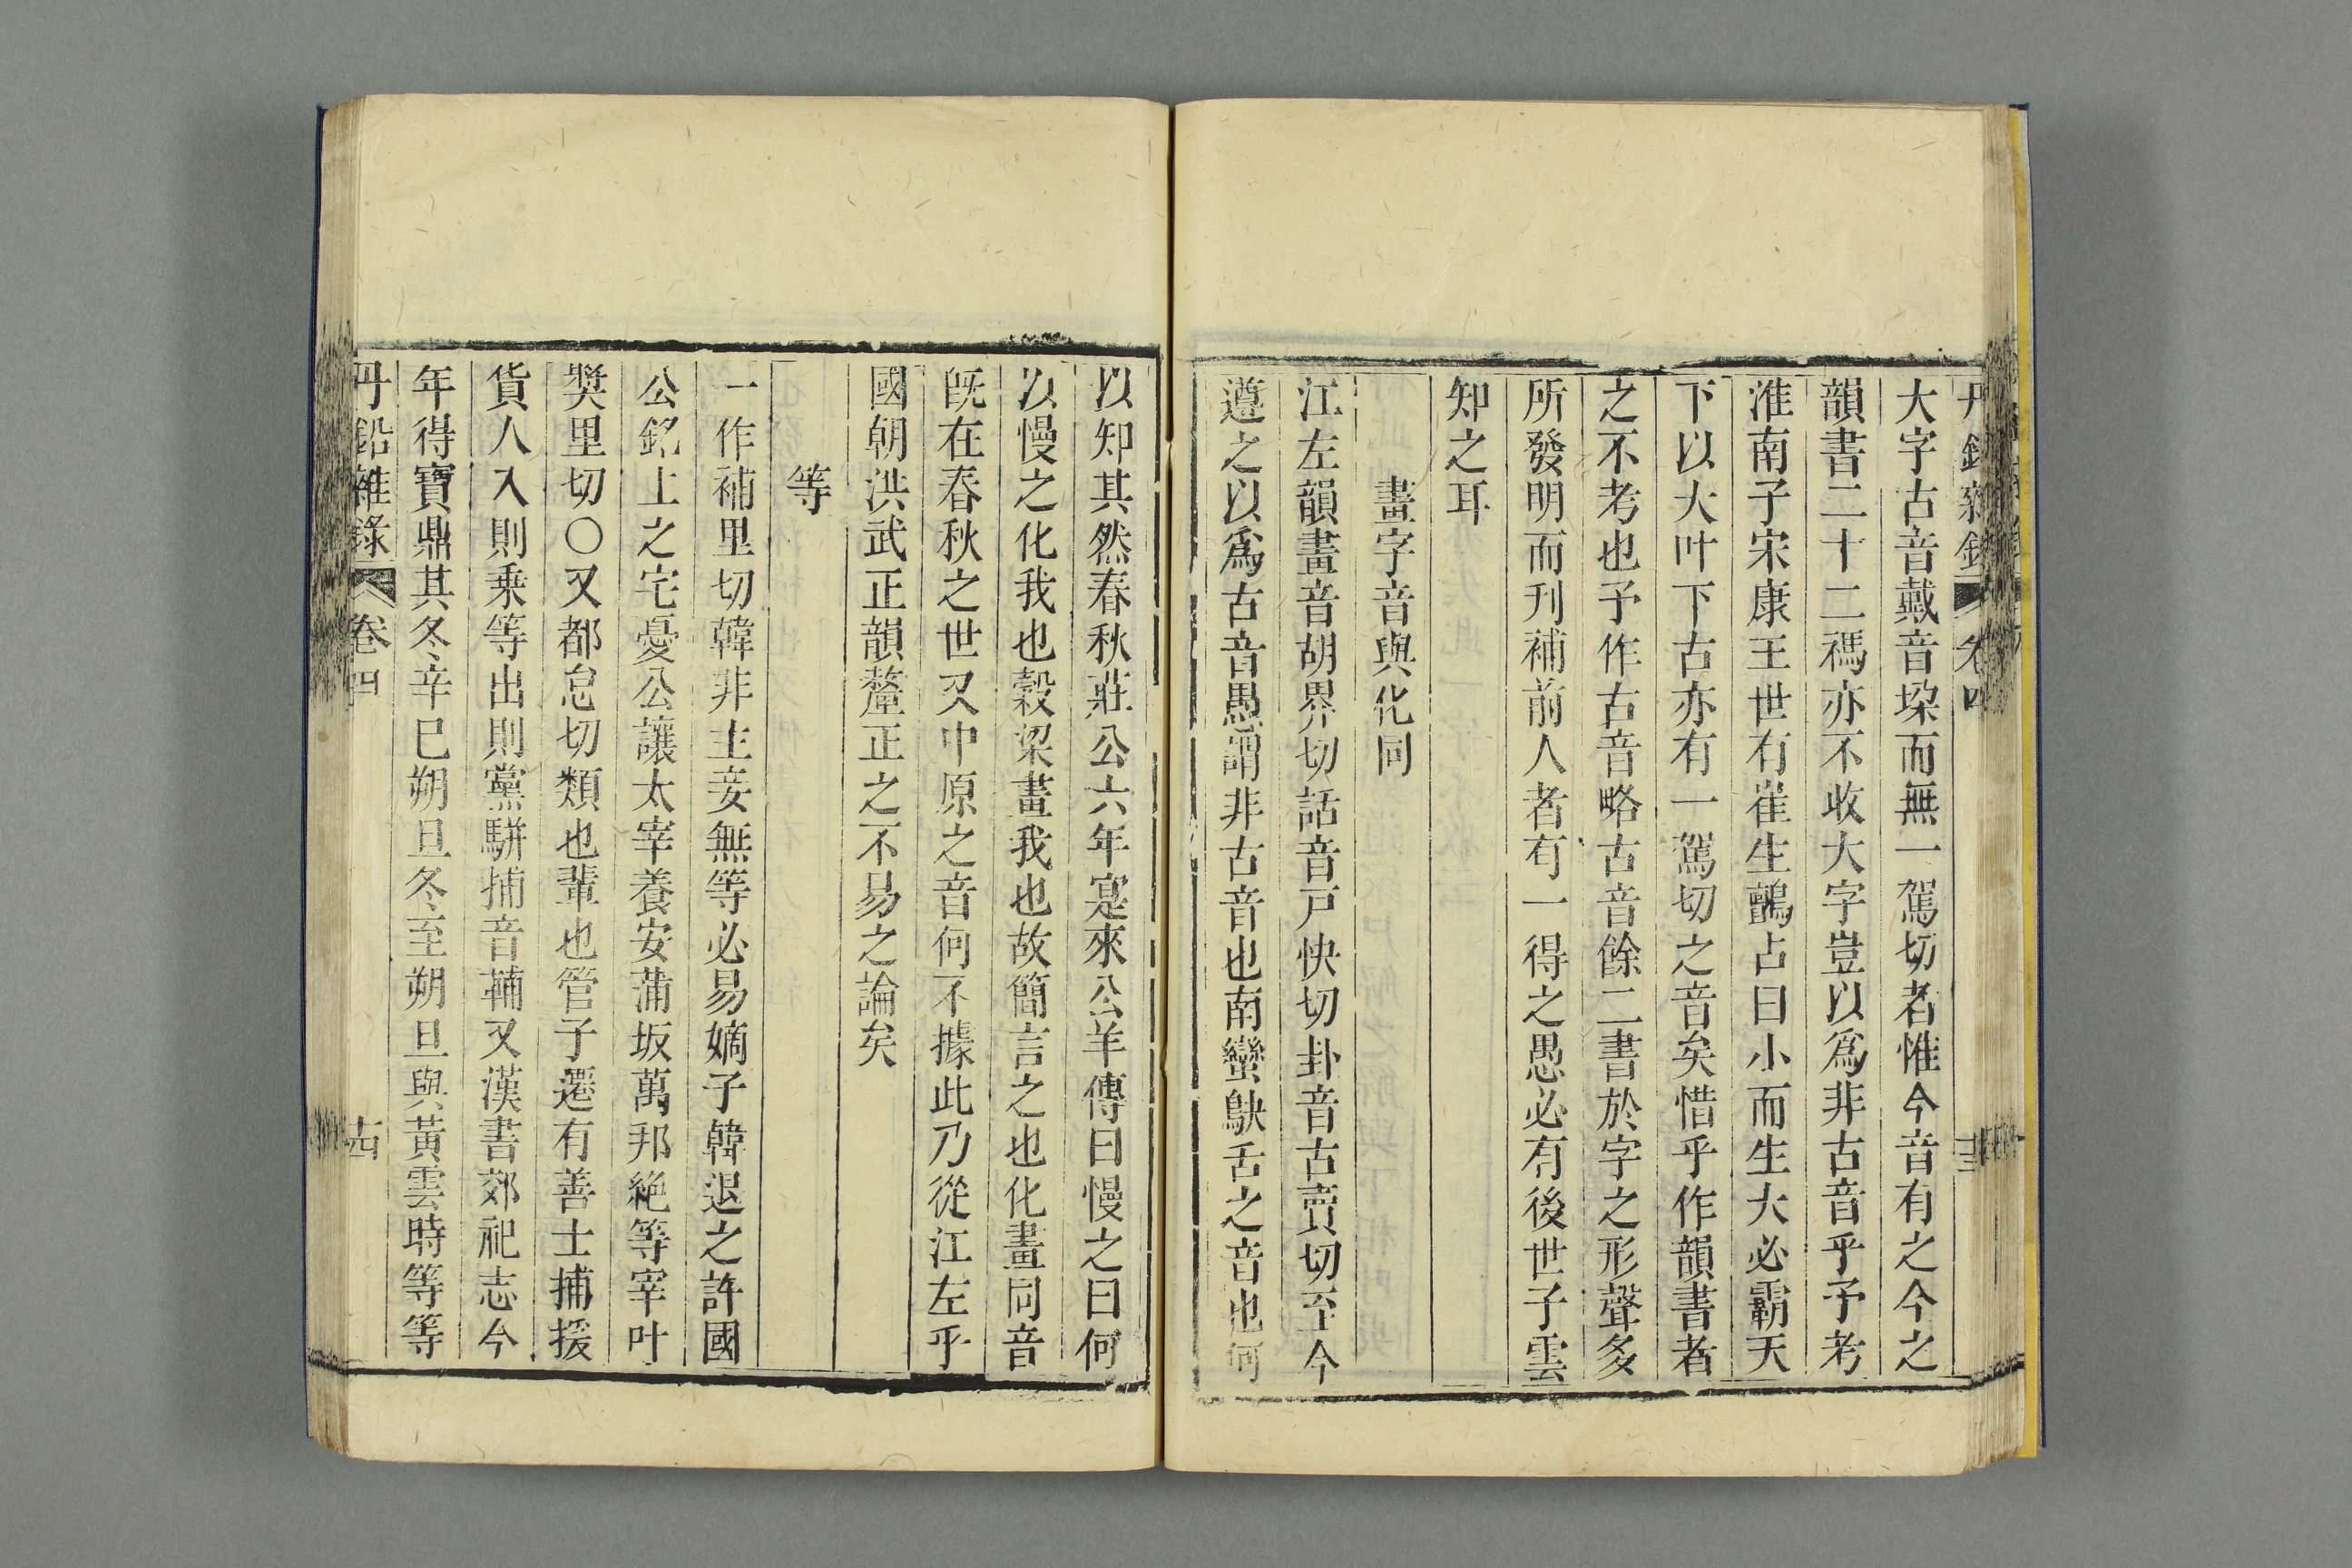 丹鉛雜錄 卷四 十三
大字古音戴音垜而無一駕切者惟今音有之今之
韻書二十二禡亦不收大字豈以爲非古音乎予考
淮南子宋康王世有雀生鸇占曰小而生大必霸天
下以大叶下古亦有一駕切之音矣惜乎作韻書者
之不考也予作古音略古音餘二書於字之形聲多
所發明而刋補前人者有一得之愚必有後世子雲
知之耳
畫字音與化同
江左韻畫音胡界切話音戸快切卦音古賣切至今
遵之以爲古音愚謂非古音也南蠻鴃舌之音也何
以知其然春秋莊公六年寔來公羊傳曰慢之曰何
以慢之化我也穀梁畫我也故簡言之也化畫同音
旣在春秋之世又中原之音何不據此乃從江左乎
國朝洪武正韻釐正之不易之論矣
等
一作補里切韓非主妾無等必易嫡子韓退之許國
公銘上之宅憂公讓太宰養安蒲坂萬邦絶等宰叶
奬里切〇又都怠切類也輩也管子選有善士捕援
貨人入則乘等出則黨駢捕音輔又漢書郊祀志今
年得寶鼎其冬辛巳朔旦冬至朔旦與黃雲時等等
丹鉛雜錄 卷四 十四